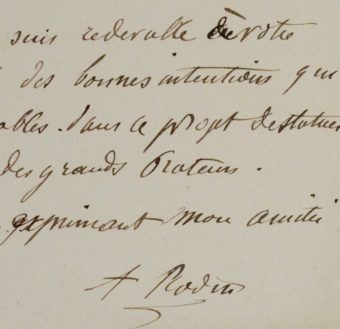 suis redevable de votre
des bonnes intentions que
ables. dans ce projet de statues
des grands Orateurs.
exprimant mon amitié
A Rodin